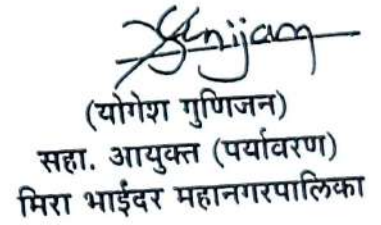 (योगेश गुणिजन)
सहा. आयुक्त (पर्यावरण)
मिरा भाईंदर महानगरपालिका